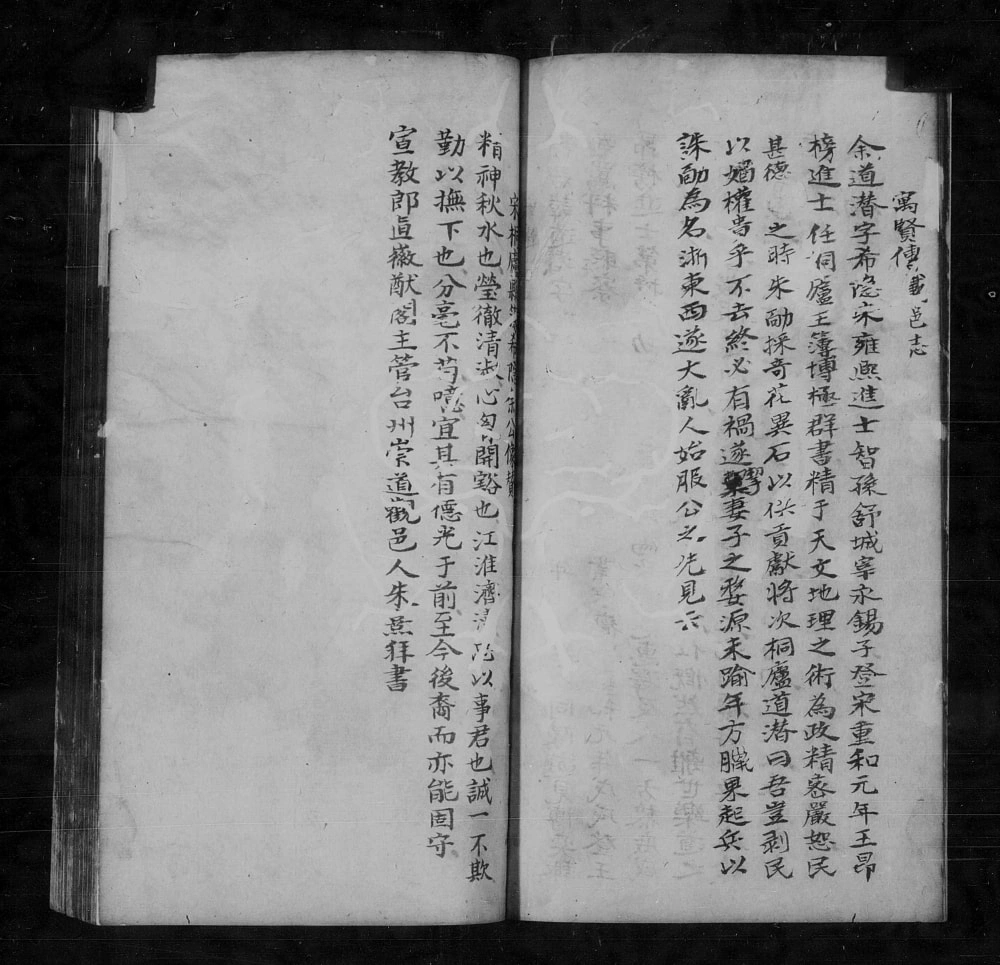 寓賢傳 載邑志
余道潛字希隐宋雍熙進士智孫舒城宰永錫子登宋重和元年王昂
榜進士任洞廬主簿博極群書精于天文地理之術為政精密嚴恕民
甚德 之時朱勔採奇花異石以供貢獻將次桐廬道潛曰吾豈剥民
以媚權貴乎不去終必有禍遂挈妻子之婺源未踰年方臘果起兵以
誅勔為名浙東西遂大亂人始服公之先見云
宋桐廬縣主簿 隱余公像贊
精神秋水也瑩徹清淑心匈開豁也江淮濟 以事君也誠一不欺
勤以撫下也分毫不苟噫宜其有德光于前至今後裔而亦能固守
宣教郎直徽猷閣主管台州崇道觀邑人朱 拜書